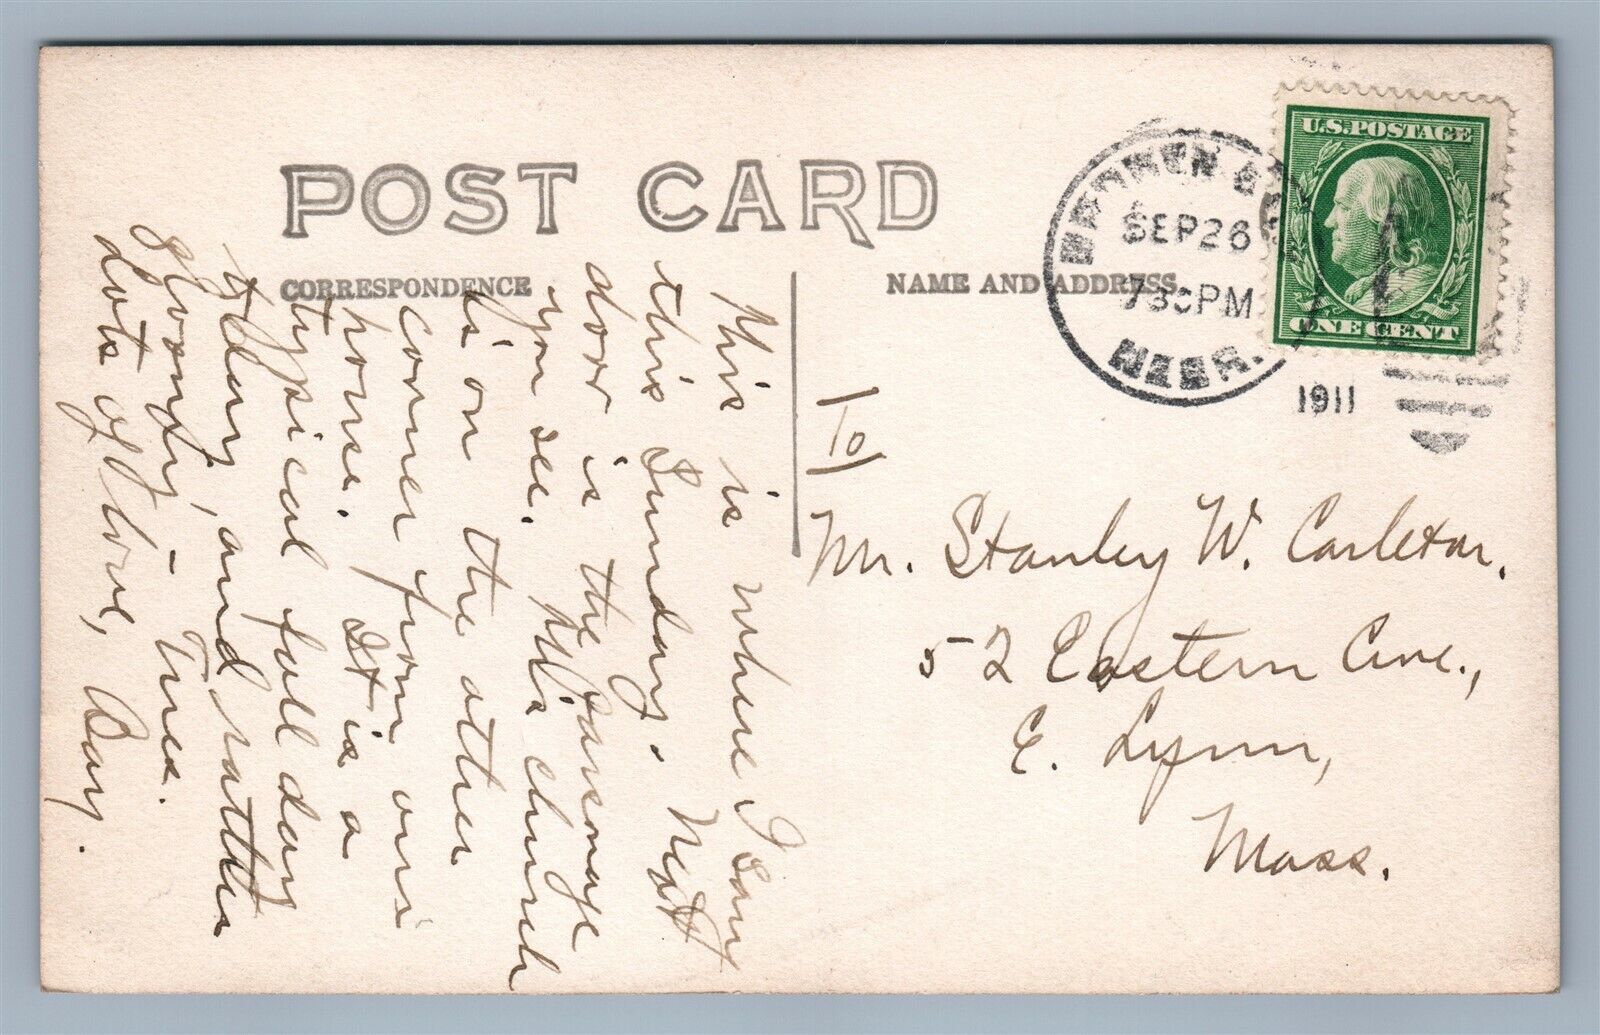 POST CARD
CORRESPONDENCE
NAME AND ADDRESS
SEP 26
730PM
MASS.
1911
U.S. POSTAGE
ONE CENT
This is where I sang
this Sunday. Next
door is the Parsonage
you see. This church
is on the other
corner from our
house. It is a
typical fall day
today, and rather
gloomy, – Tues.
Lots of love,
To
Mr. Stanley W. Carleton,
52 Eastern Ave.,
E. Lynn,
Mass.